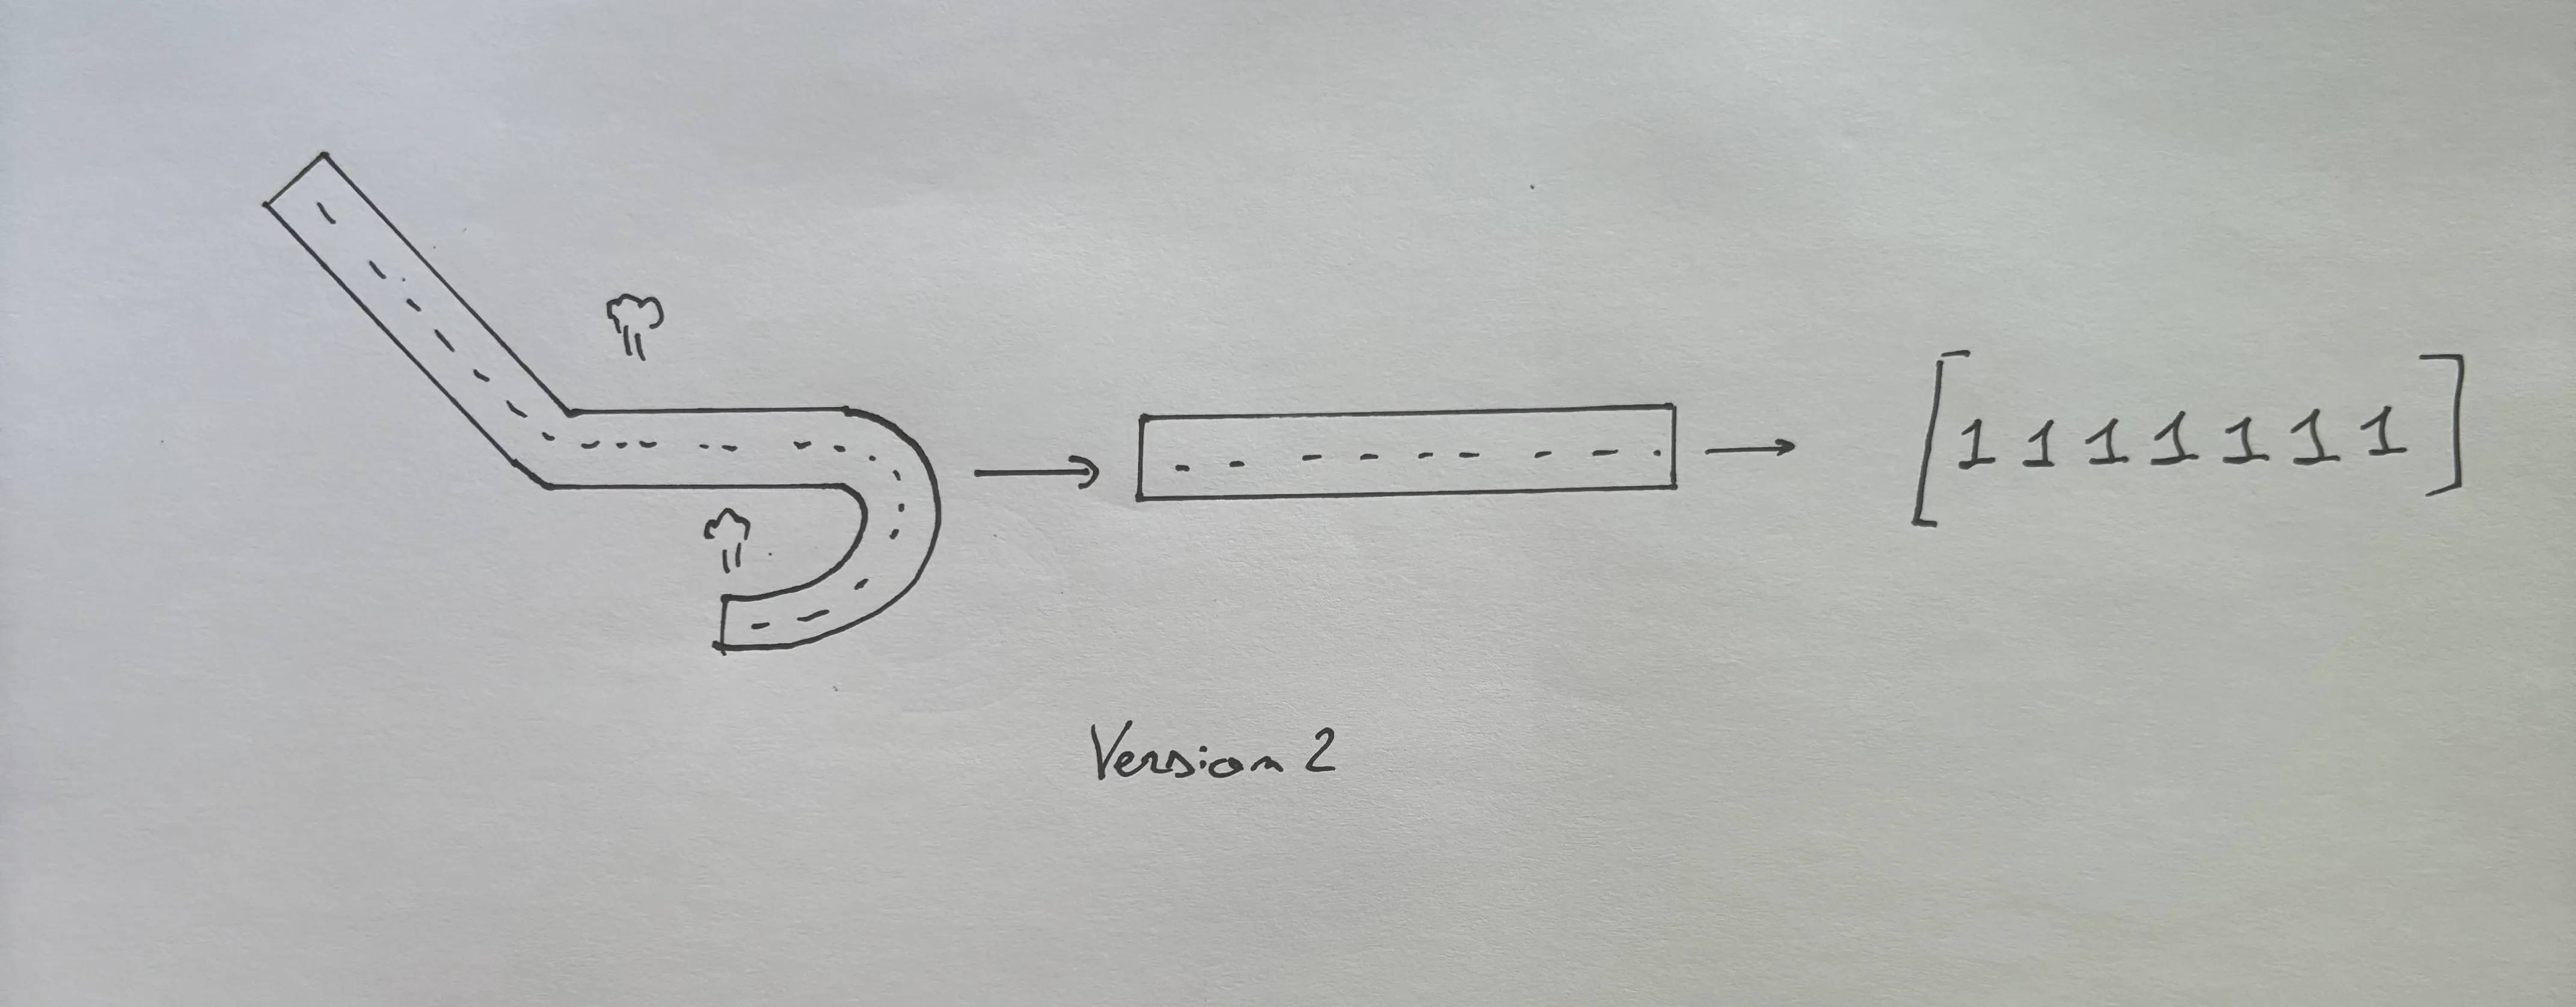 [1 1 1 1 1 1 1]
Version 2